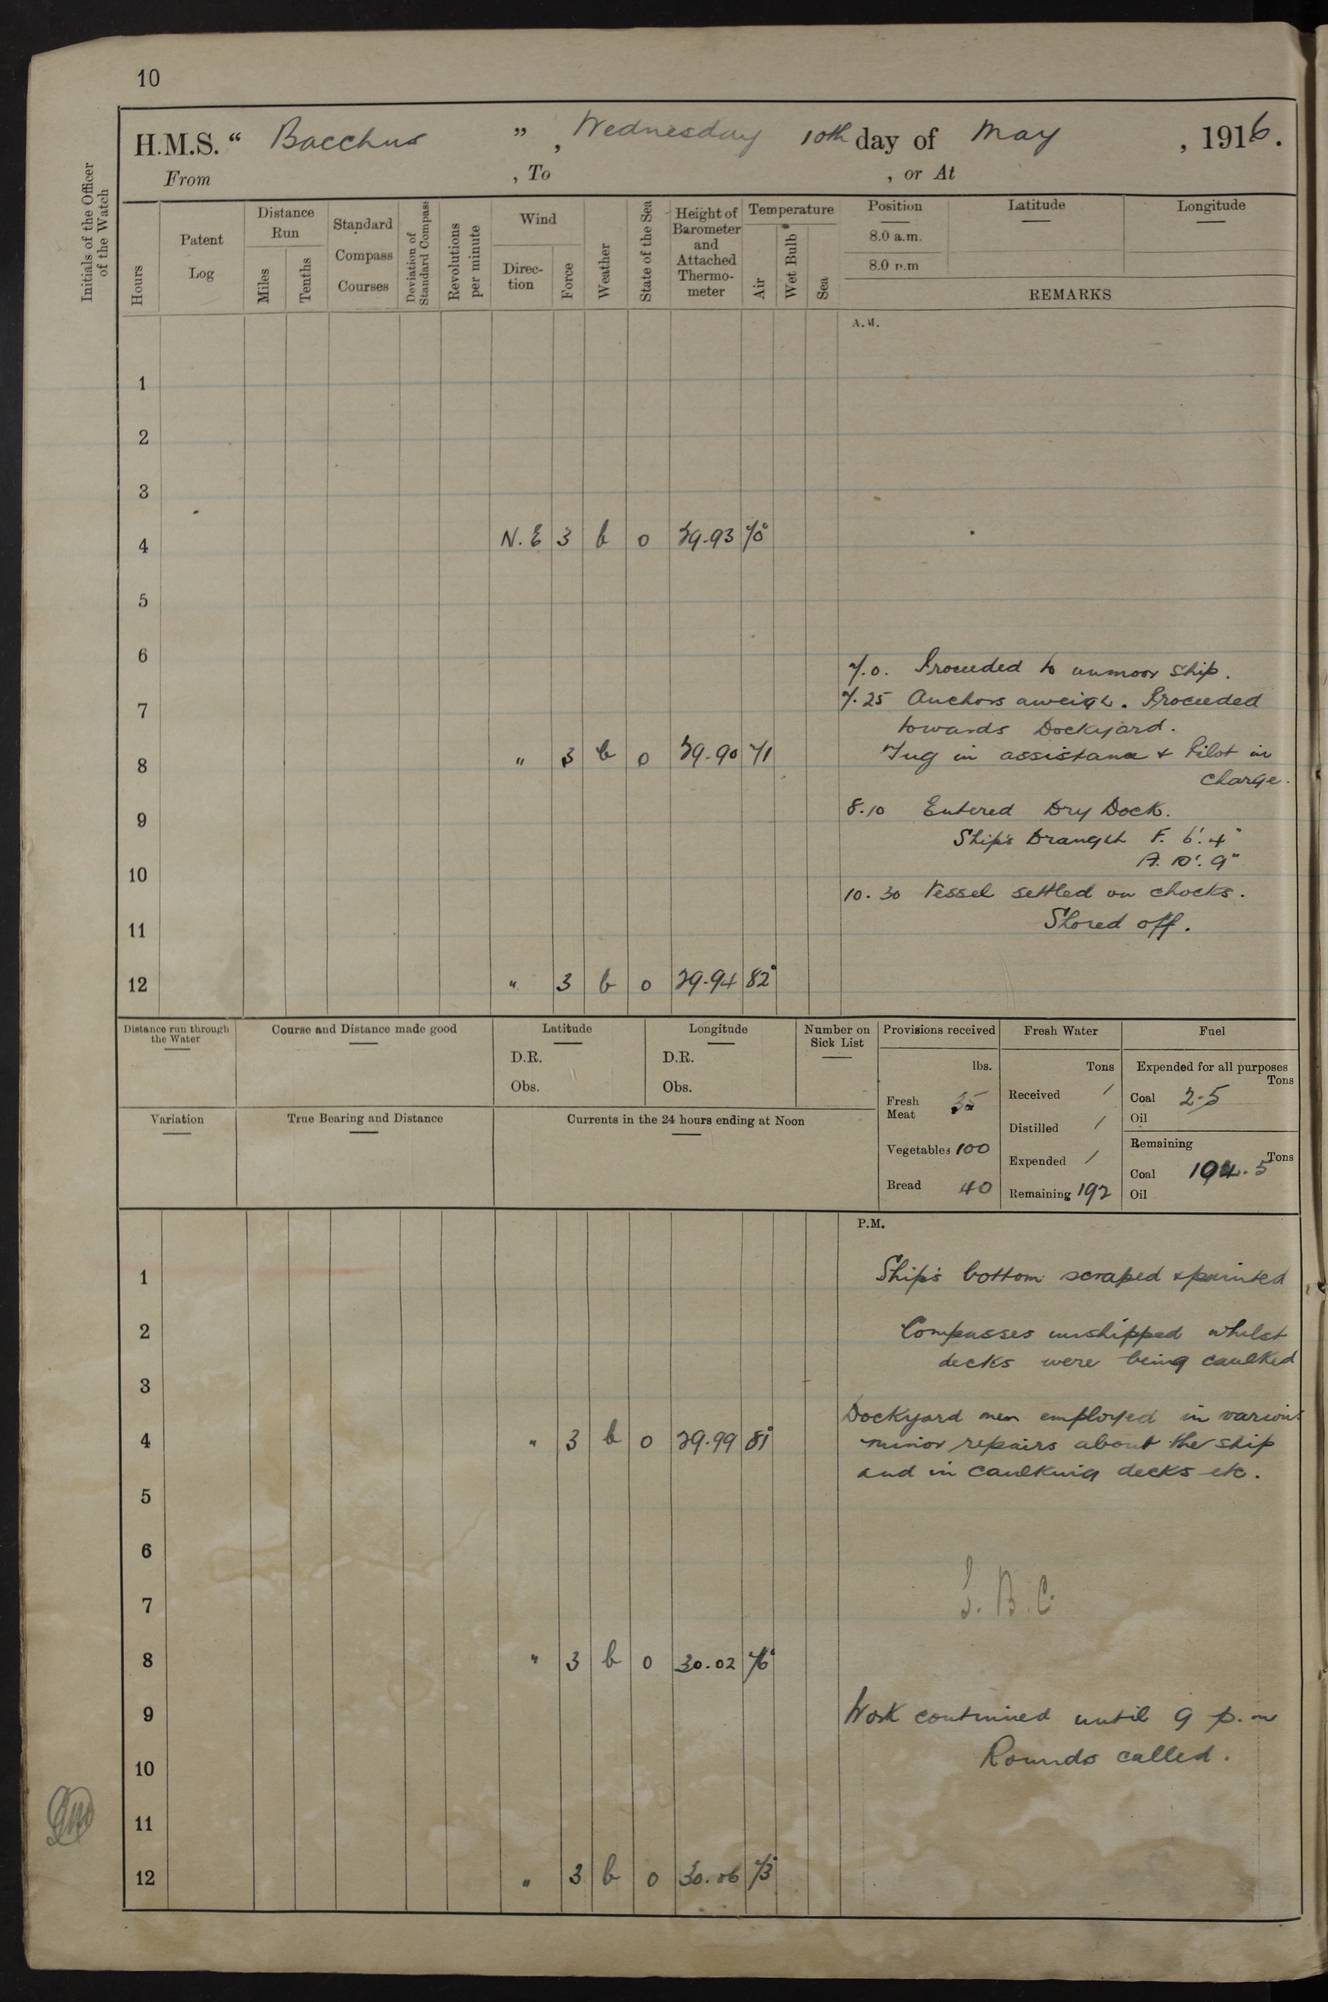 10
H.M.S. “ Bacchus ” , Wednesday 10th day of May , 1916.
From , To , or At
Initials of the Officer of the Watch
Hours
Patent Log
Distance Run
Miles
Tenths
Standard Compass Courses
Deviation of Standard Compass
Revolutions per minute
Wind
Direc-tion
Force
Weather
State of the Sea
Height of Barometer and Attached Thermo-meter
Temperature
Air
Wet Bulb
Sea
Position
8.0 a.m.
8.0 p.m
Latitude
Longitude
REMARKS
A.M.
1
2
3
4 N.E 3 b 0 29.93 70°
5
6
7.0. Proceeded to unmoor ship.
7.25 Anchors aweigh. Proceeded
7
towards Dockyard.
8 " 3 b 0 29.90 71
Tug in assistance & Pilot in
charge.
9 8.10 Entered Dry Dock.
Ship's Draught F. 6'.4"
A. 10'. 9"
10
10.30 Vessel settled on chocks.
11 Shored off.
12 " 3 b 0 29.94 82°
Distance run through the Water
Course and Distance made good
Latitude
D.R.
Obs.
Longitude
D.R.
Obs.
Number on Sick List
Variation
True Bearing and Distance
Currents in the 24 hours ending at Noon
Provisions received
lbs.
Fresh Meat 35
Vegetables 100
Bread 40
Fresh Water
Tons
Received /
Distilled /
Expended /
Remaining 192
Fuel
Expended for all purposes
Tons
Coal 2.5
Oil
Remaining
Tons
Coal 194.5
Oil
P.M.
1 Ship's bottom scraped & painted
2 Compasses unshipped whilst
decks were being caulked
3
Dockyard men employed in various
4 " 3 b 0 29.99 81° minor repairs about the ship
and in caulking decks etc.
5
6
7 B.C.
8 " 3 b 0 30.02 76°
9 Work continued until 9 p.m
10 Rounds called.
11
12 " 3 b 0 30.06 73°